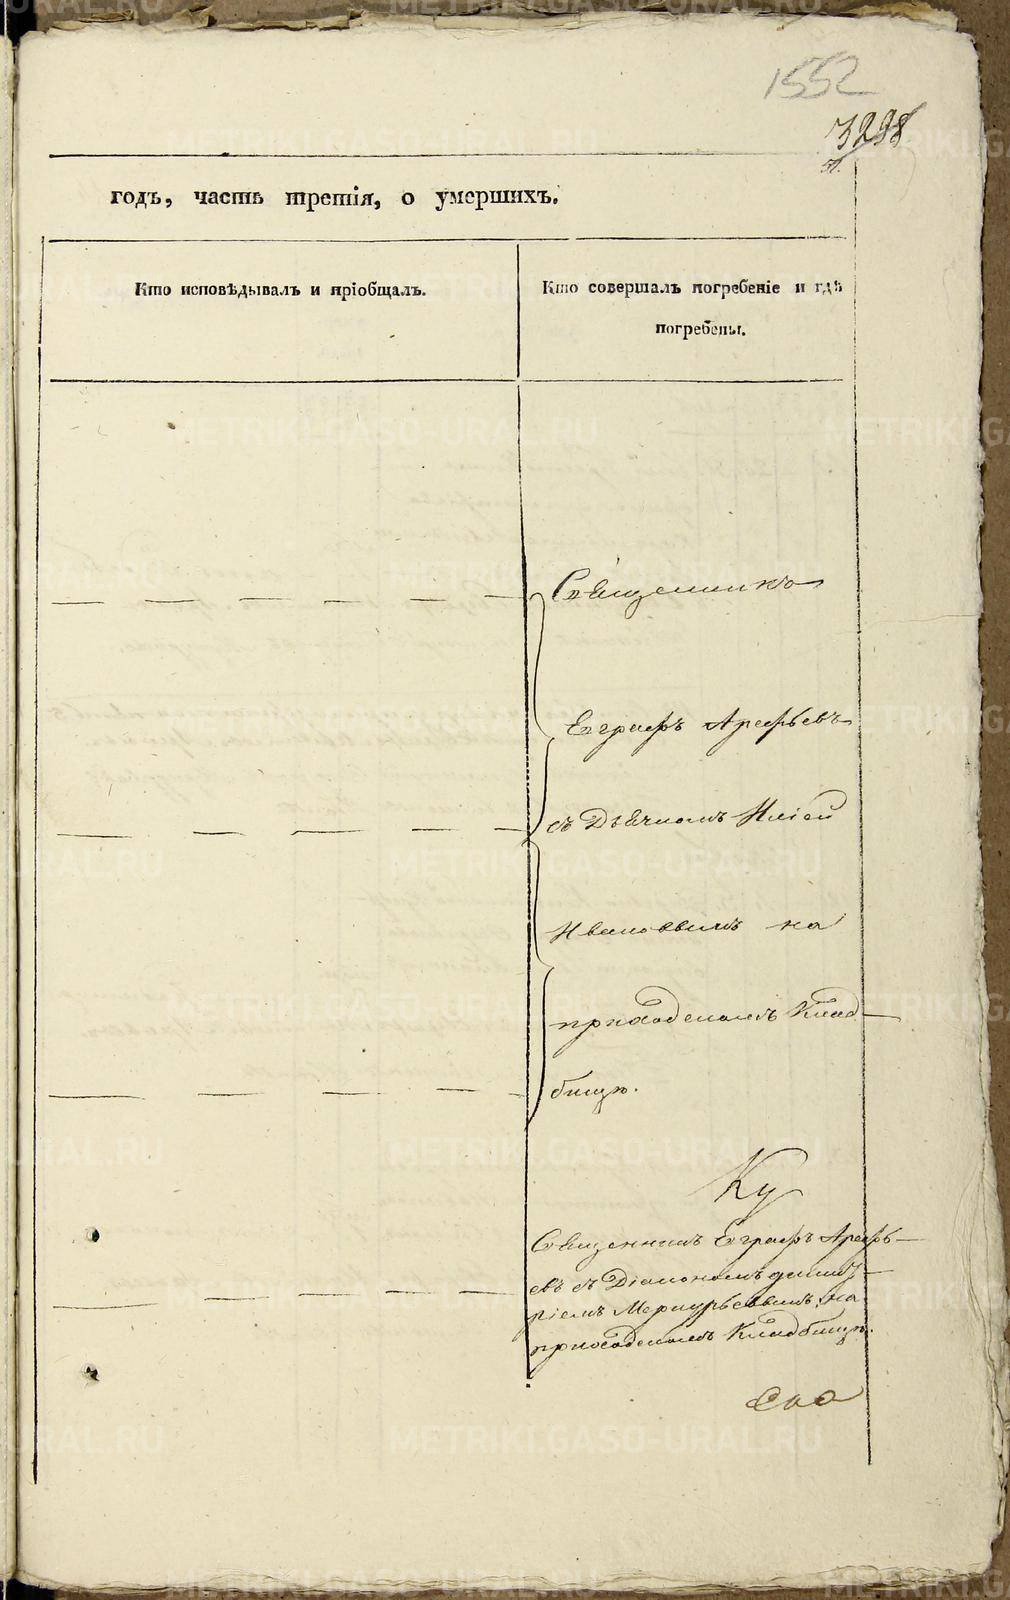 1552
3298
годъ, часть третія, о умершихъ.
Кто исповѣдывалъ и пріобщалъ.
Кто совершалъ погребеніе и гдѣ
погребены.
Священникъ
Евграфъ Арефьевъ
съ Дьячкомъ Иліей
Ивановымъ на
приходскомъ Клад-
бищѣ.
Ку
Священникъ Евграфъ Арефь-
евъ съ Діакономъ Димит-
ріемъ Меркурьевымъ на
приходскомъ Кладбищѣ.
METRIKI.GASO-URAL.RU